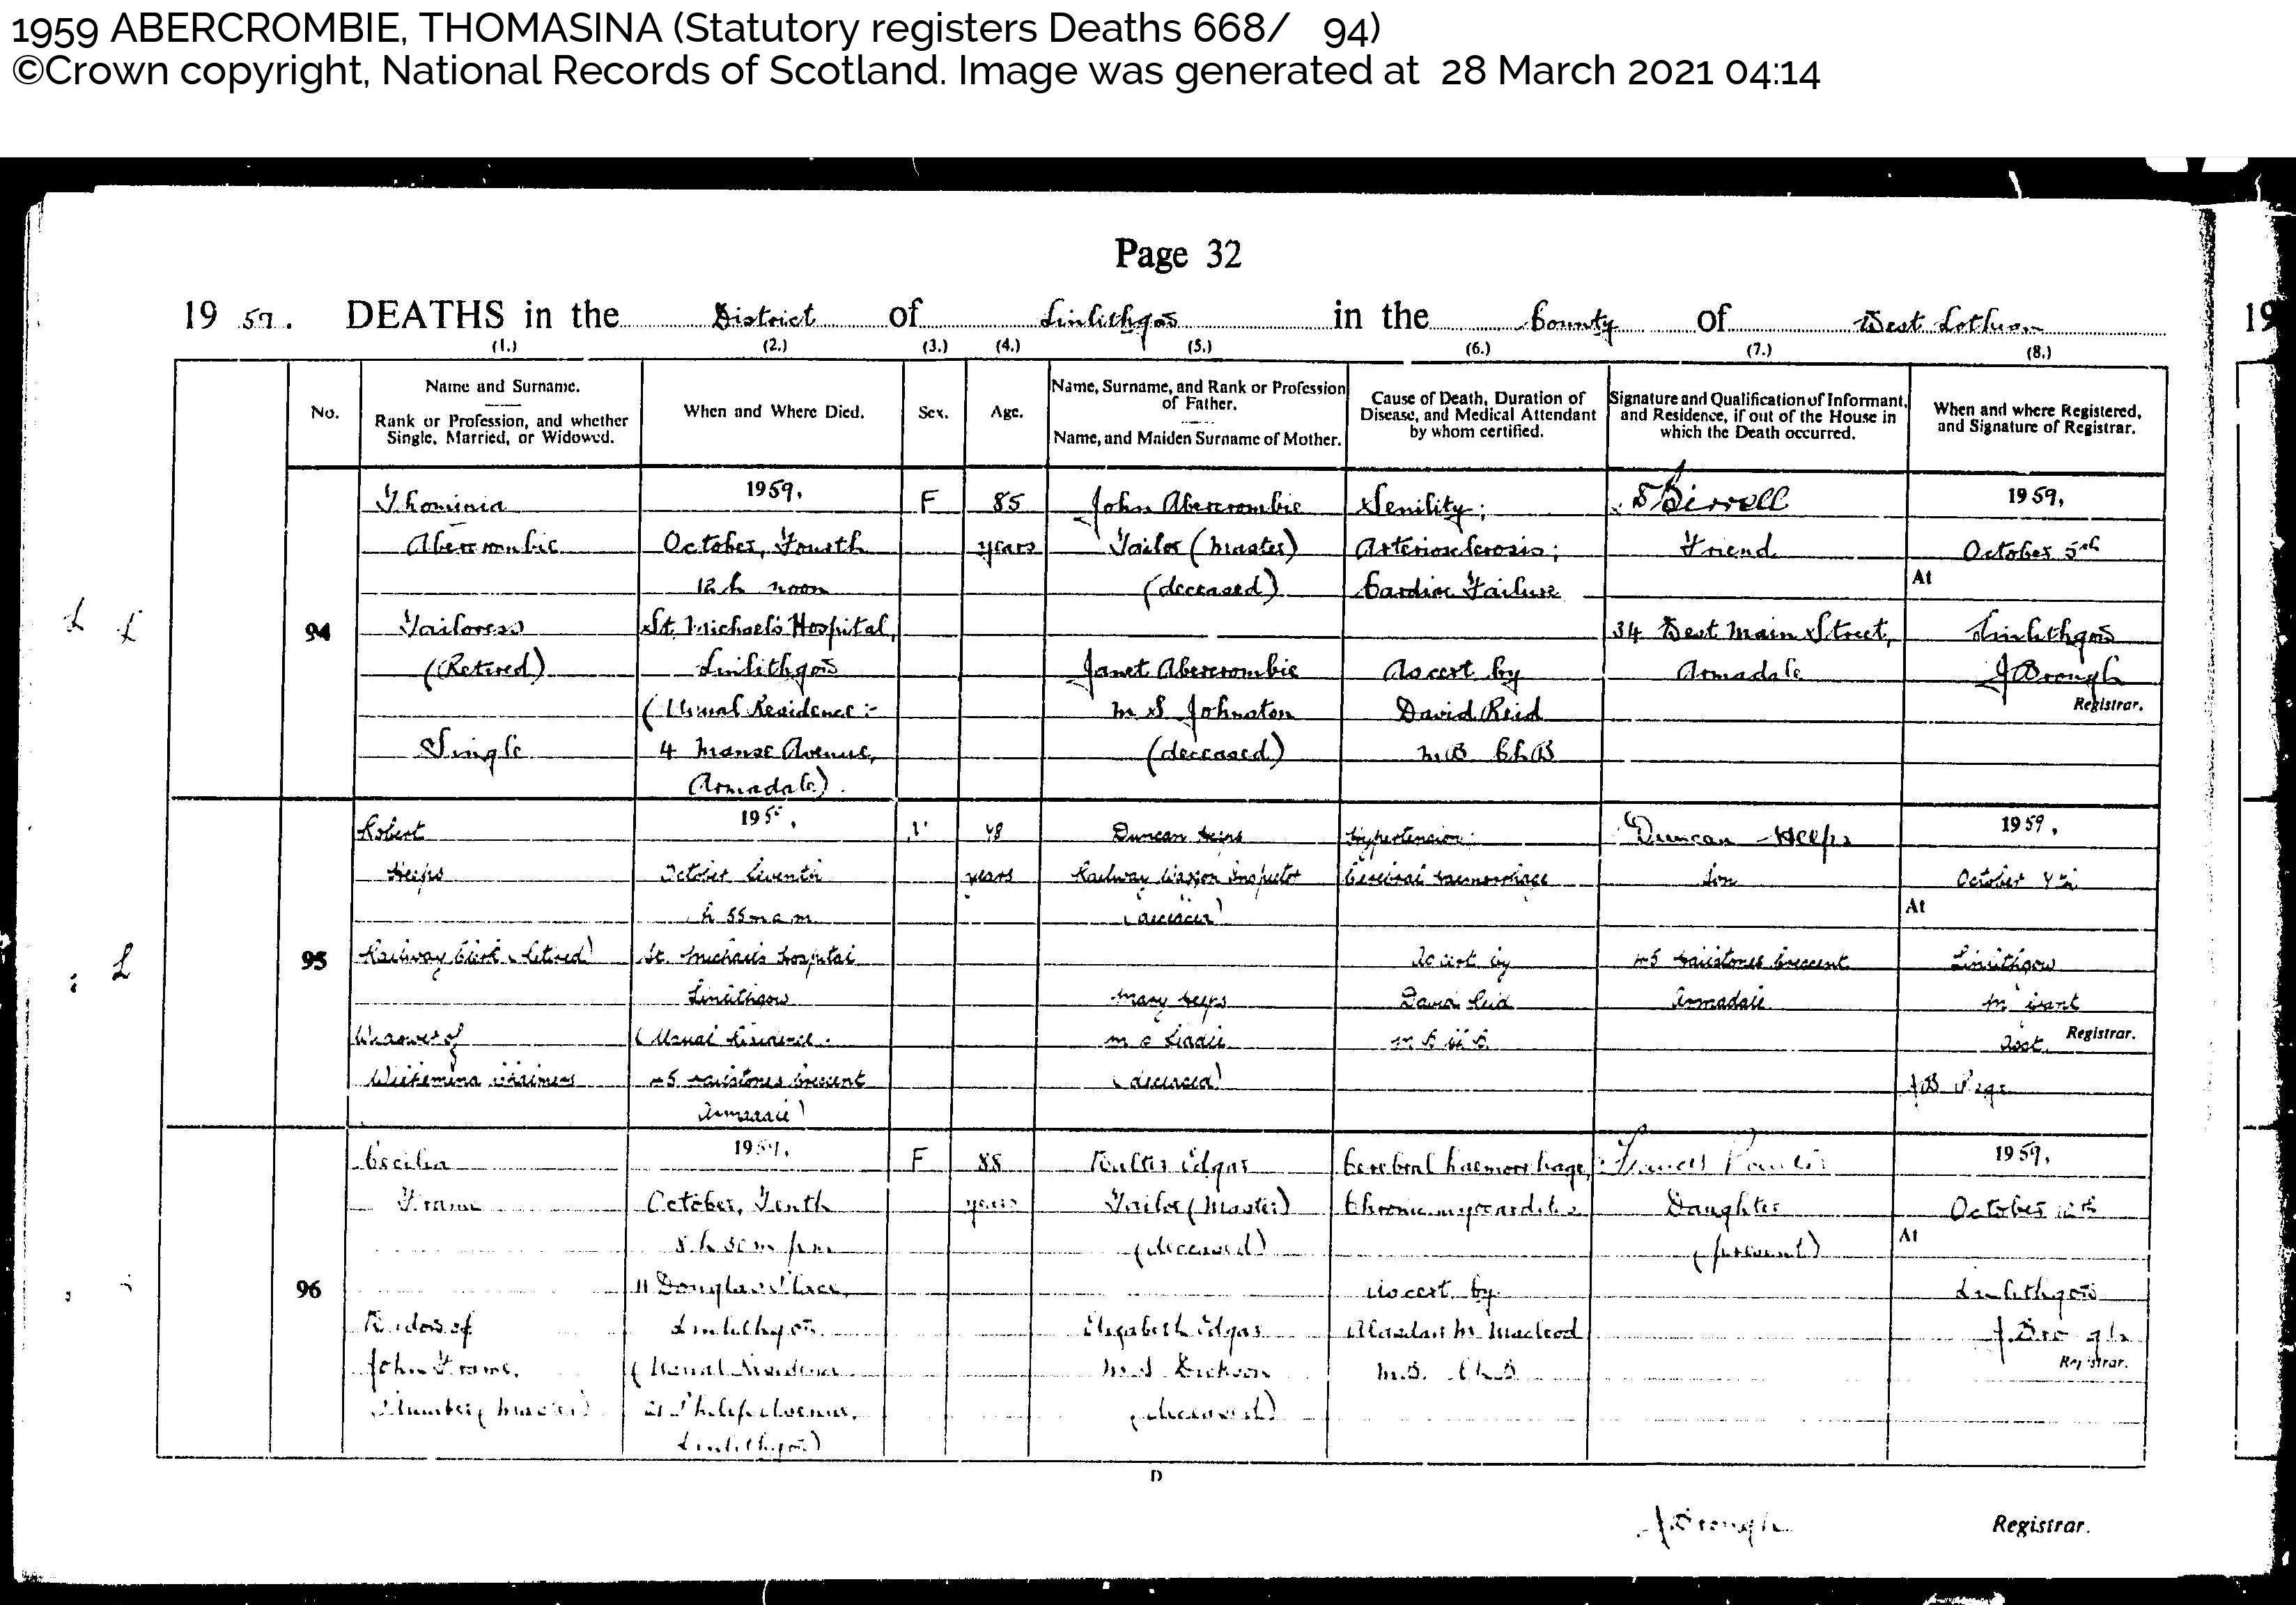 1959 ABERCROMBIE, THOMASINA (Statutory registers Deaths 668/ 94)
©Crown copyright, National Records of Scotland. Image was generated at 28 March 2021 04:14
Page 32
1959. DEATHS in the District of Linlithgow in the County of West Lothian
19
(1.) (2.) (3.) (4.) (5.) (6.) (7.) (8.)
No.
Name and Surname.
Rank or Profession, and whether
Single, Married, or Widowed.
When and Where Died.
Sex.
Age.
Name, Surname, and Rank or Profession
of Father.
Name, and Maiden Surname of Mother.
Cause of Death, Duration of
Disease, and Medical Attendant
by whom certified.
Signature and Qualification of Informant,
and Residence, if out of the House in
which the Death occurred.
When and where Registered,
and Signature of Registrar.
94
Abercrombie
Tailoress
(Retired)
Single
1959,
October, Fourth
12 h noon
St. Michael's Hospital,
Linlithgow
(Usual Residence:-
4 Manse Avenue,
Armadale).
F
85
years
John Abercrombie
Tailor (Master)
(deceased)
Janet Abercrombie
m S Johnston
(deceased)
Senility;
Arteriosclerosis;
Cardiac Failure
As cert by
David Reid
M.B. Ch.B
Birrell
Friend
34 West Main Street,
Armadale
1959,
October 5th
At
Linlithgow
J Brough
Registrar.
95
Robert
Heeps
Railway Clerk (Retired)
Widower of
October
h 55m a m
St. Michael's Hospital
Linlithgow
(Usual Residence
Crescent
Armadale)
years
Duncan Heeps
Railway Waggon Inspector
(deceased)
Mary Heeps
m s
(deceased)
Hypertension
Cerebral Haemorrhage
As cert by
David Reid
Duncan Heeps
Son
Crescent
Armadale
1959,
October
At
Linlithgow
Registrar.
Asst.
96
Cecilia
Frame
Widow of
John Frame,
Plumber (Master)
October, Tenth
8 h 30 m p m
11 Douglas Place,
Linlithgow
(Usual Residence
21 Philip Avenue,
Linlithgow)
F
88
years
Walter Edgar
Tailor (Master)
(deceased)
Elizabeth Edgar
M.S. Dickson
(deceased)
Cerebral haemorrhage,
Chronic myocarditis
As cert by
Alasdair M. Macleod
M.B. Ch.B
Daughter
(present)
1959,
October 12th
At
Linlithgow
J Brough
Registrar.
D
J Brough
Registrar.